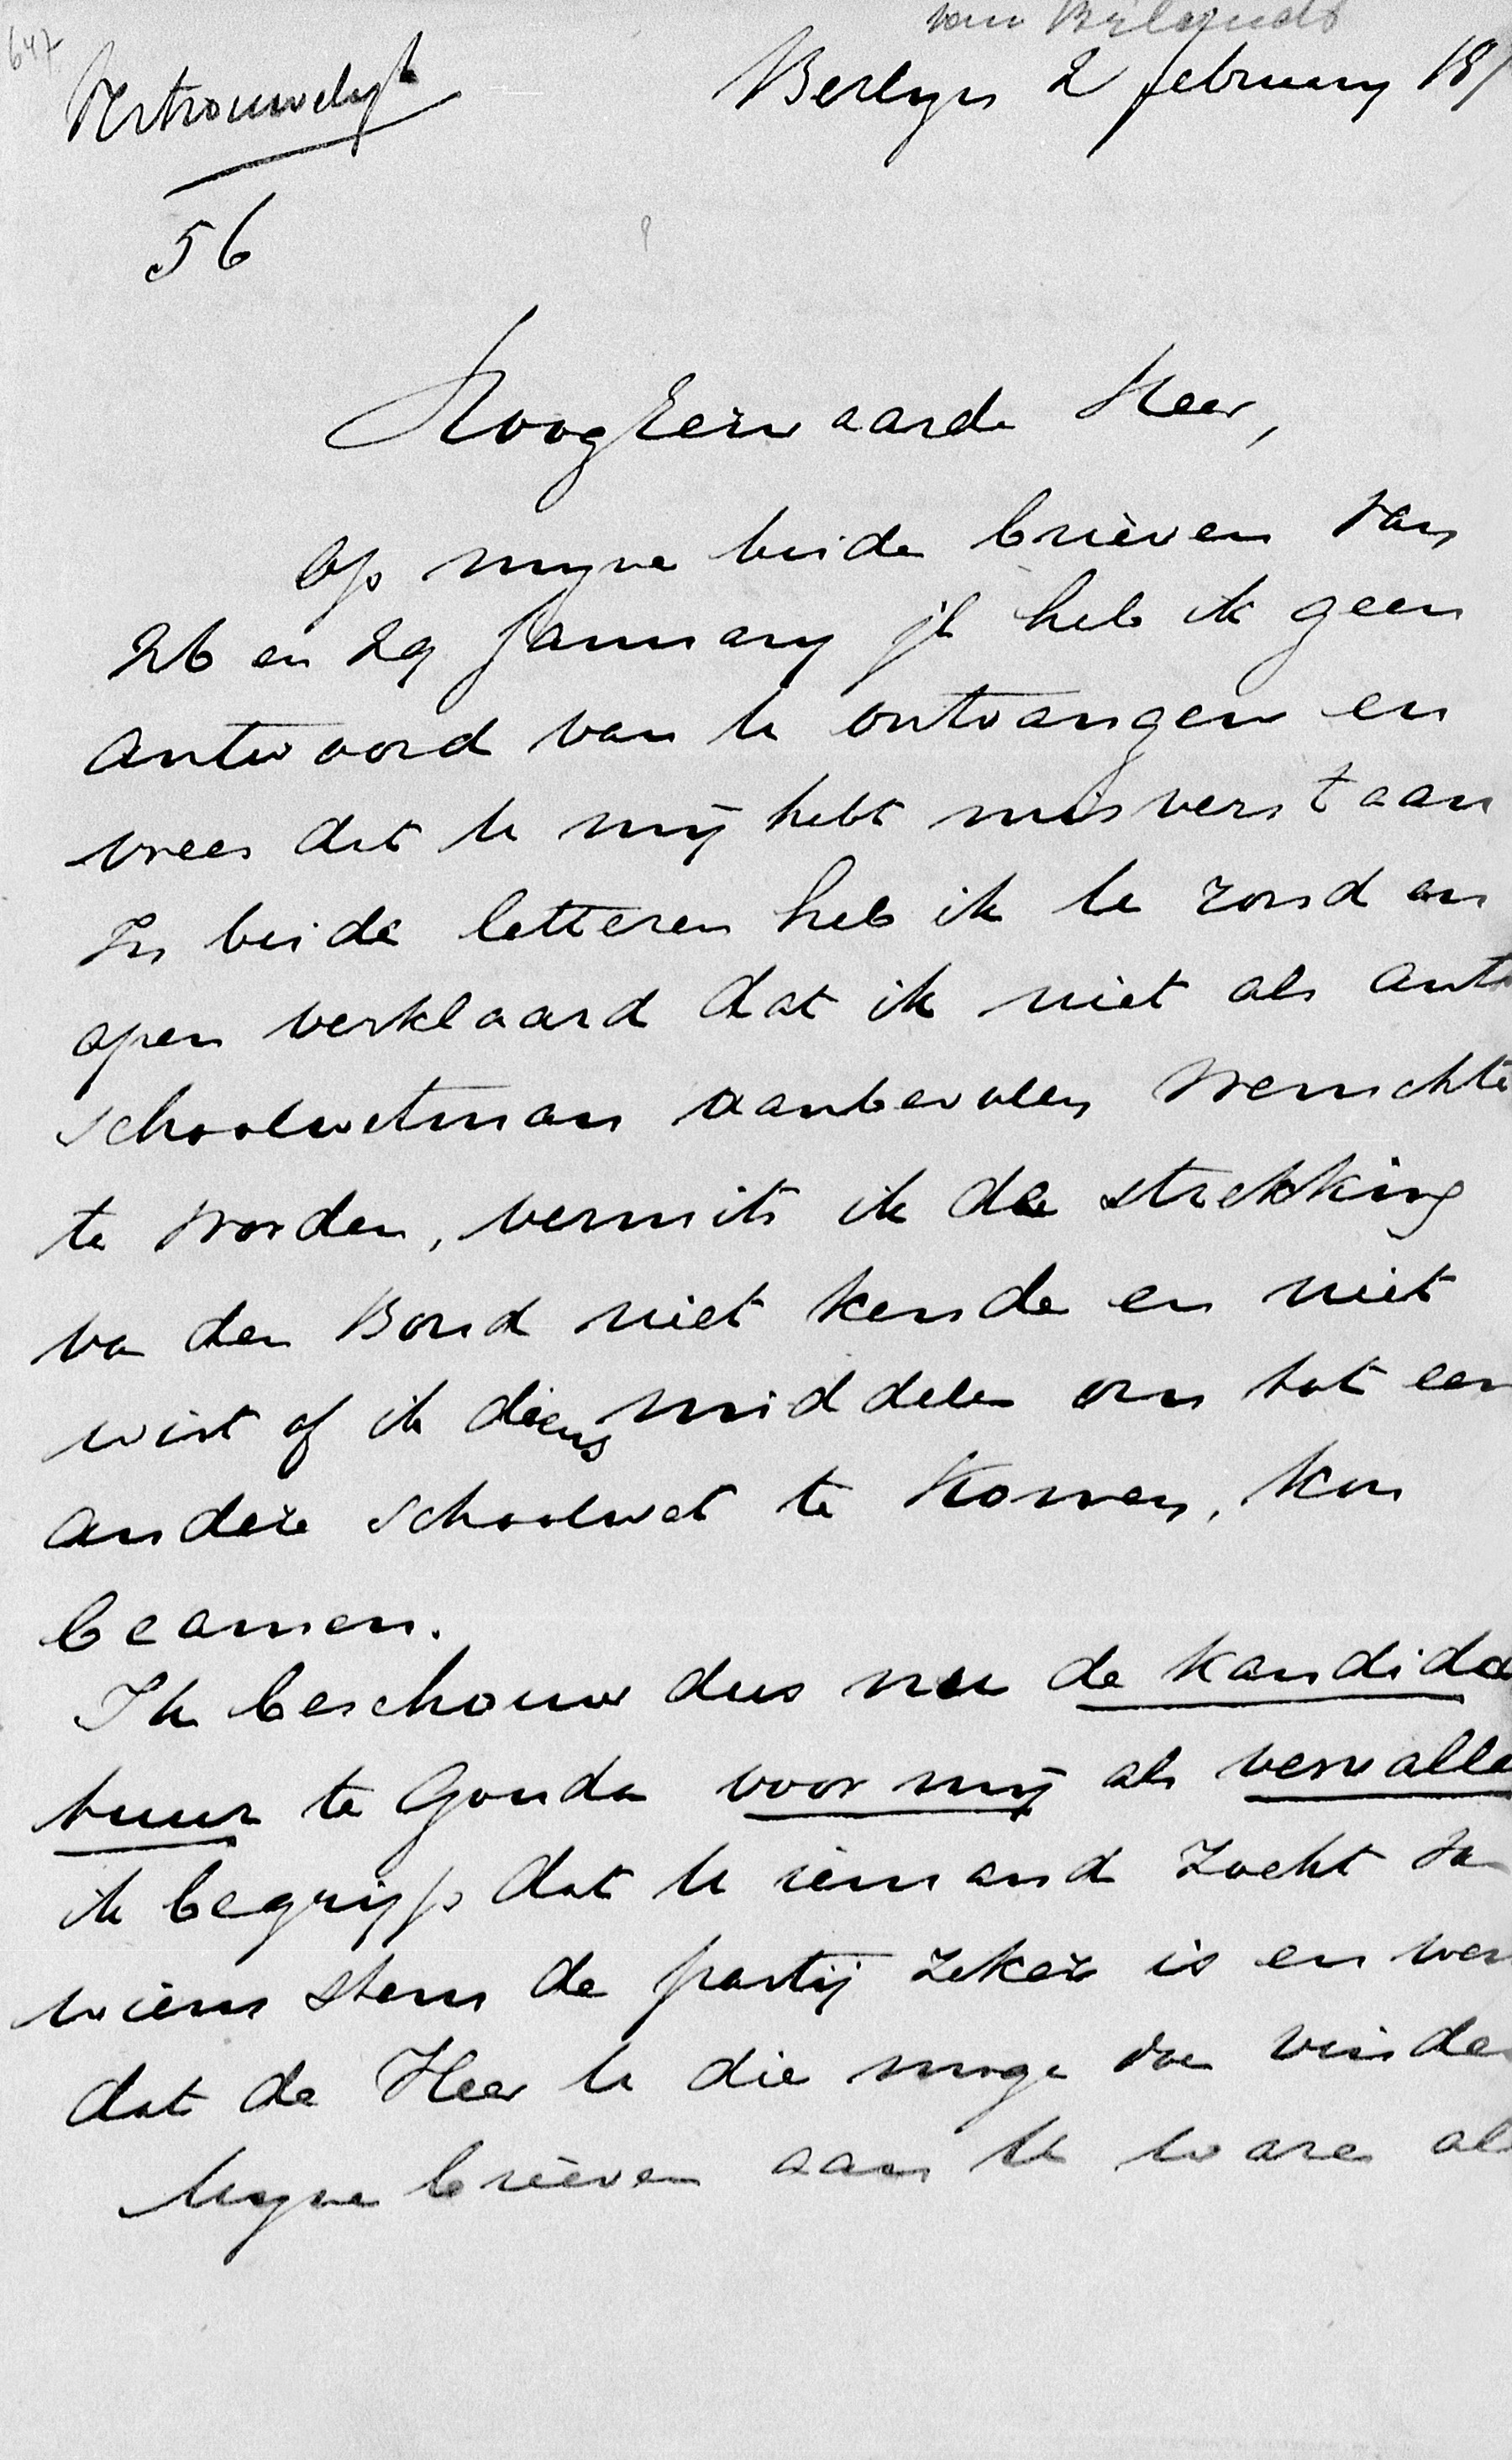 647
van Bylandt
Vertrouwelyk
Berlyn 2 february 18
56
HoogEerwaarde Heer,
Op myne beide brieven van
26 en 29 January jl heb ik geen
antwoord van U ontvangen en
vrees dat U mij hebt misverstaan
In beide letteren heb ik U rond en
open verklaard dat ik niet als anti
schoolwetman aanbevolen wenschte
te worden, vermits ik de strekking
va den Bond niet kende en niet
wist of ik diens middelen om tot een
andere schoolwet te komen, kon
beamen.
Ik beschouw dus nu de kandida
tuur te Gouda voor mij als vervalle
ik begrijp dat U iemand zocht va
wiens stem de partij zeker is en wen
dat de Heer U die moge doe vinde
Myne brieven aan U ware al